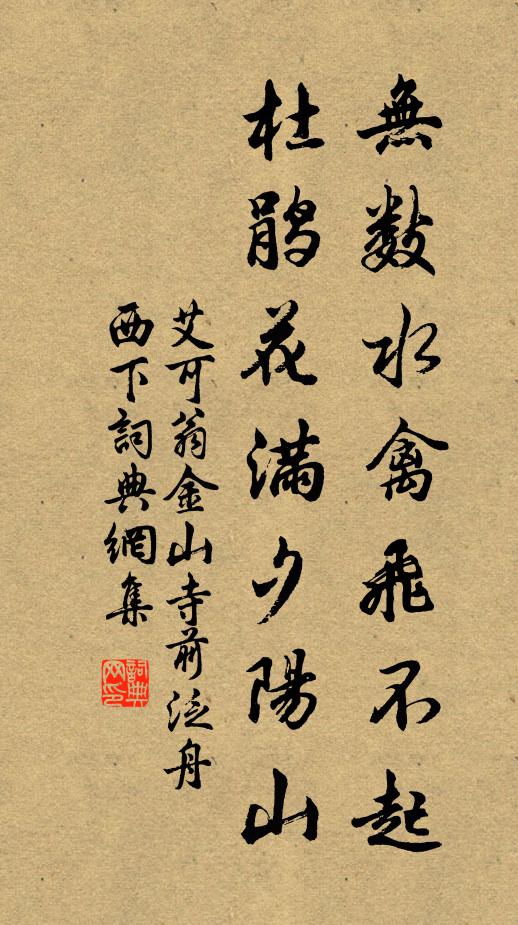 無數水禽飛不起
杜鵑花滿夕陽山
艾可翁金山寺前泛舟
西下詞典網集
詞典网印